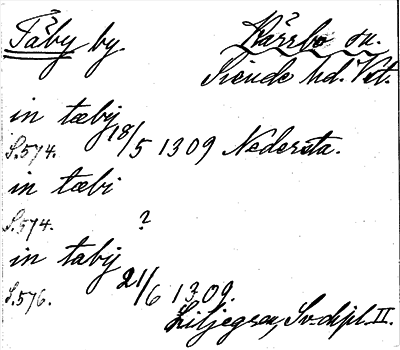 Täby by. Kärrbo sn.
Siende hd. Vst.
in tæbij
S. 574. 18/5 1309 Nedersta.
in tæbi
S. 574. ?
in tabij
S. 576. 21/6 1309.
Liljegren, Sv. dipl. II.